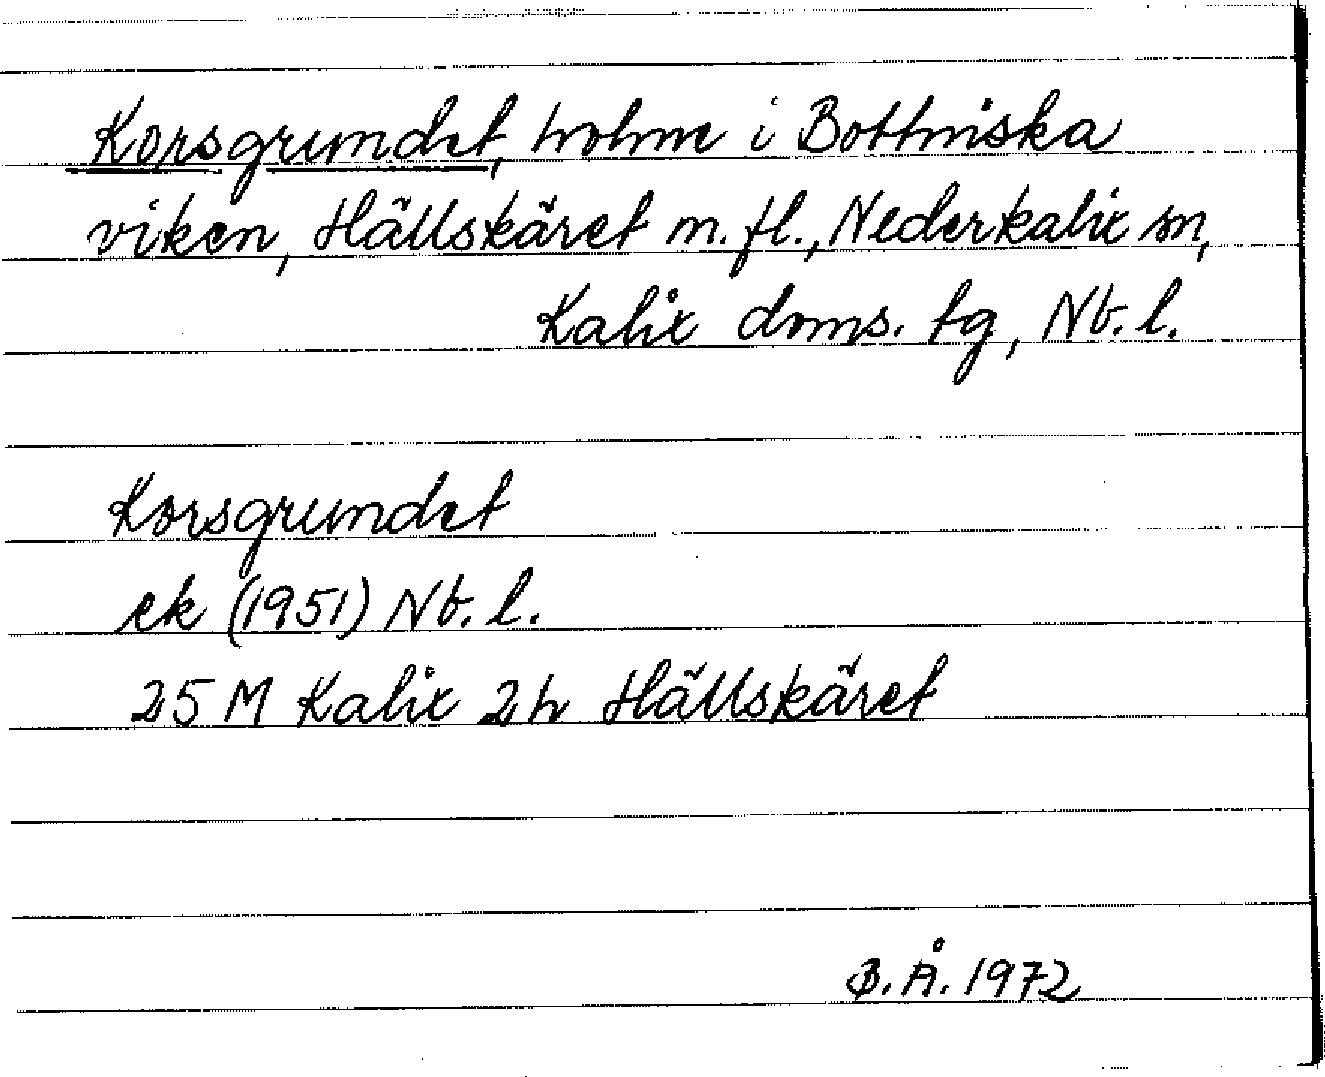 Korsgrundet, holme i Bottniska
viken, Hällskäret m.fl., Nederkalix sn,
Kalix doms. tg, Nb. l.
Korsgrundet
ek (1951) Nb. l.
25 M Kalix 2h Hällskäret
B.Å. 1972